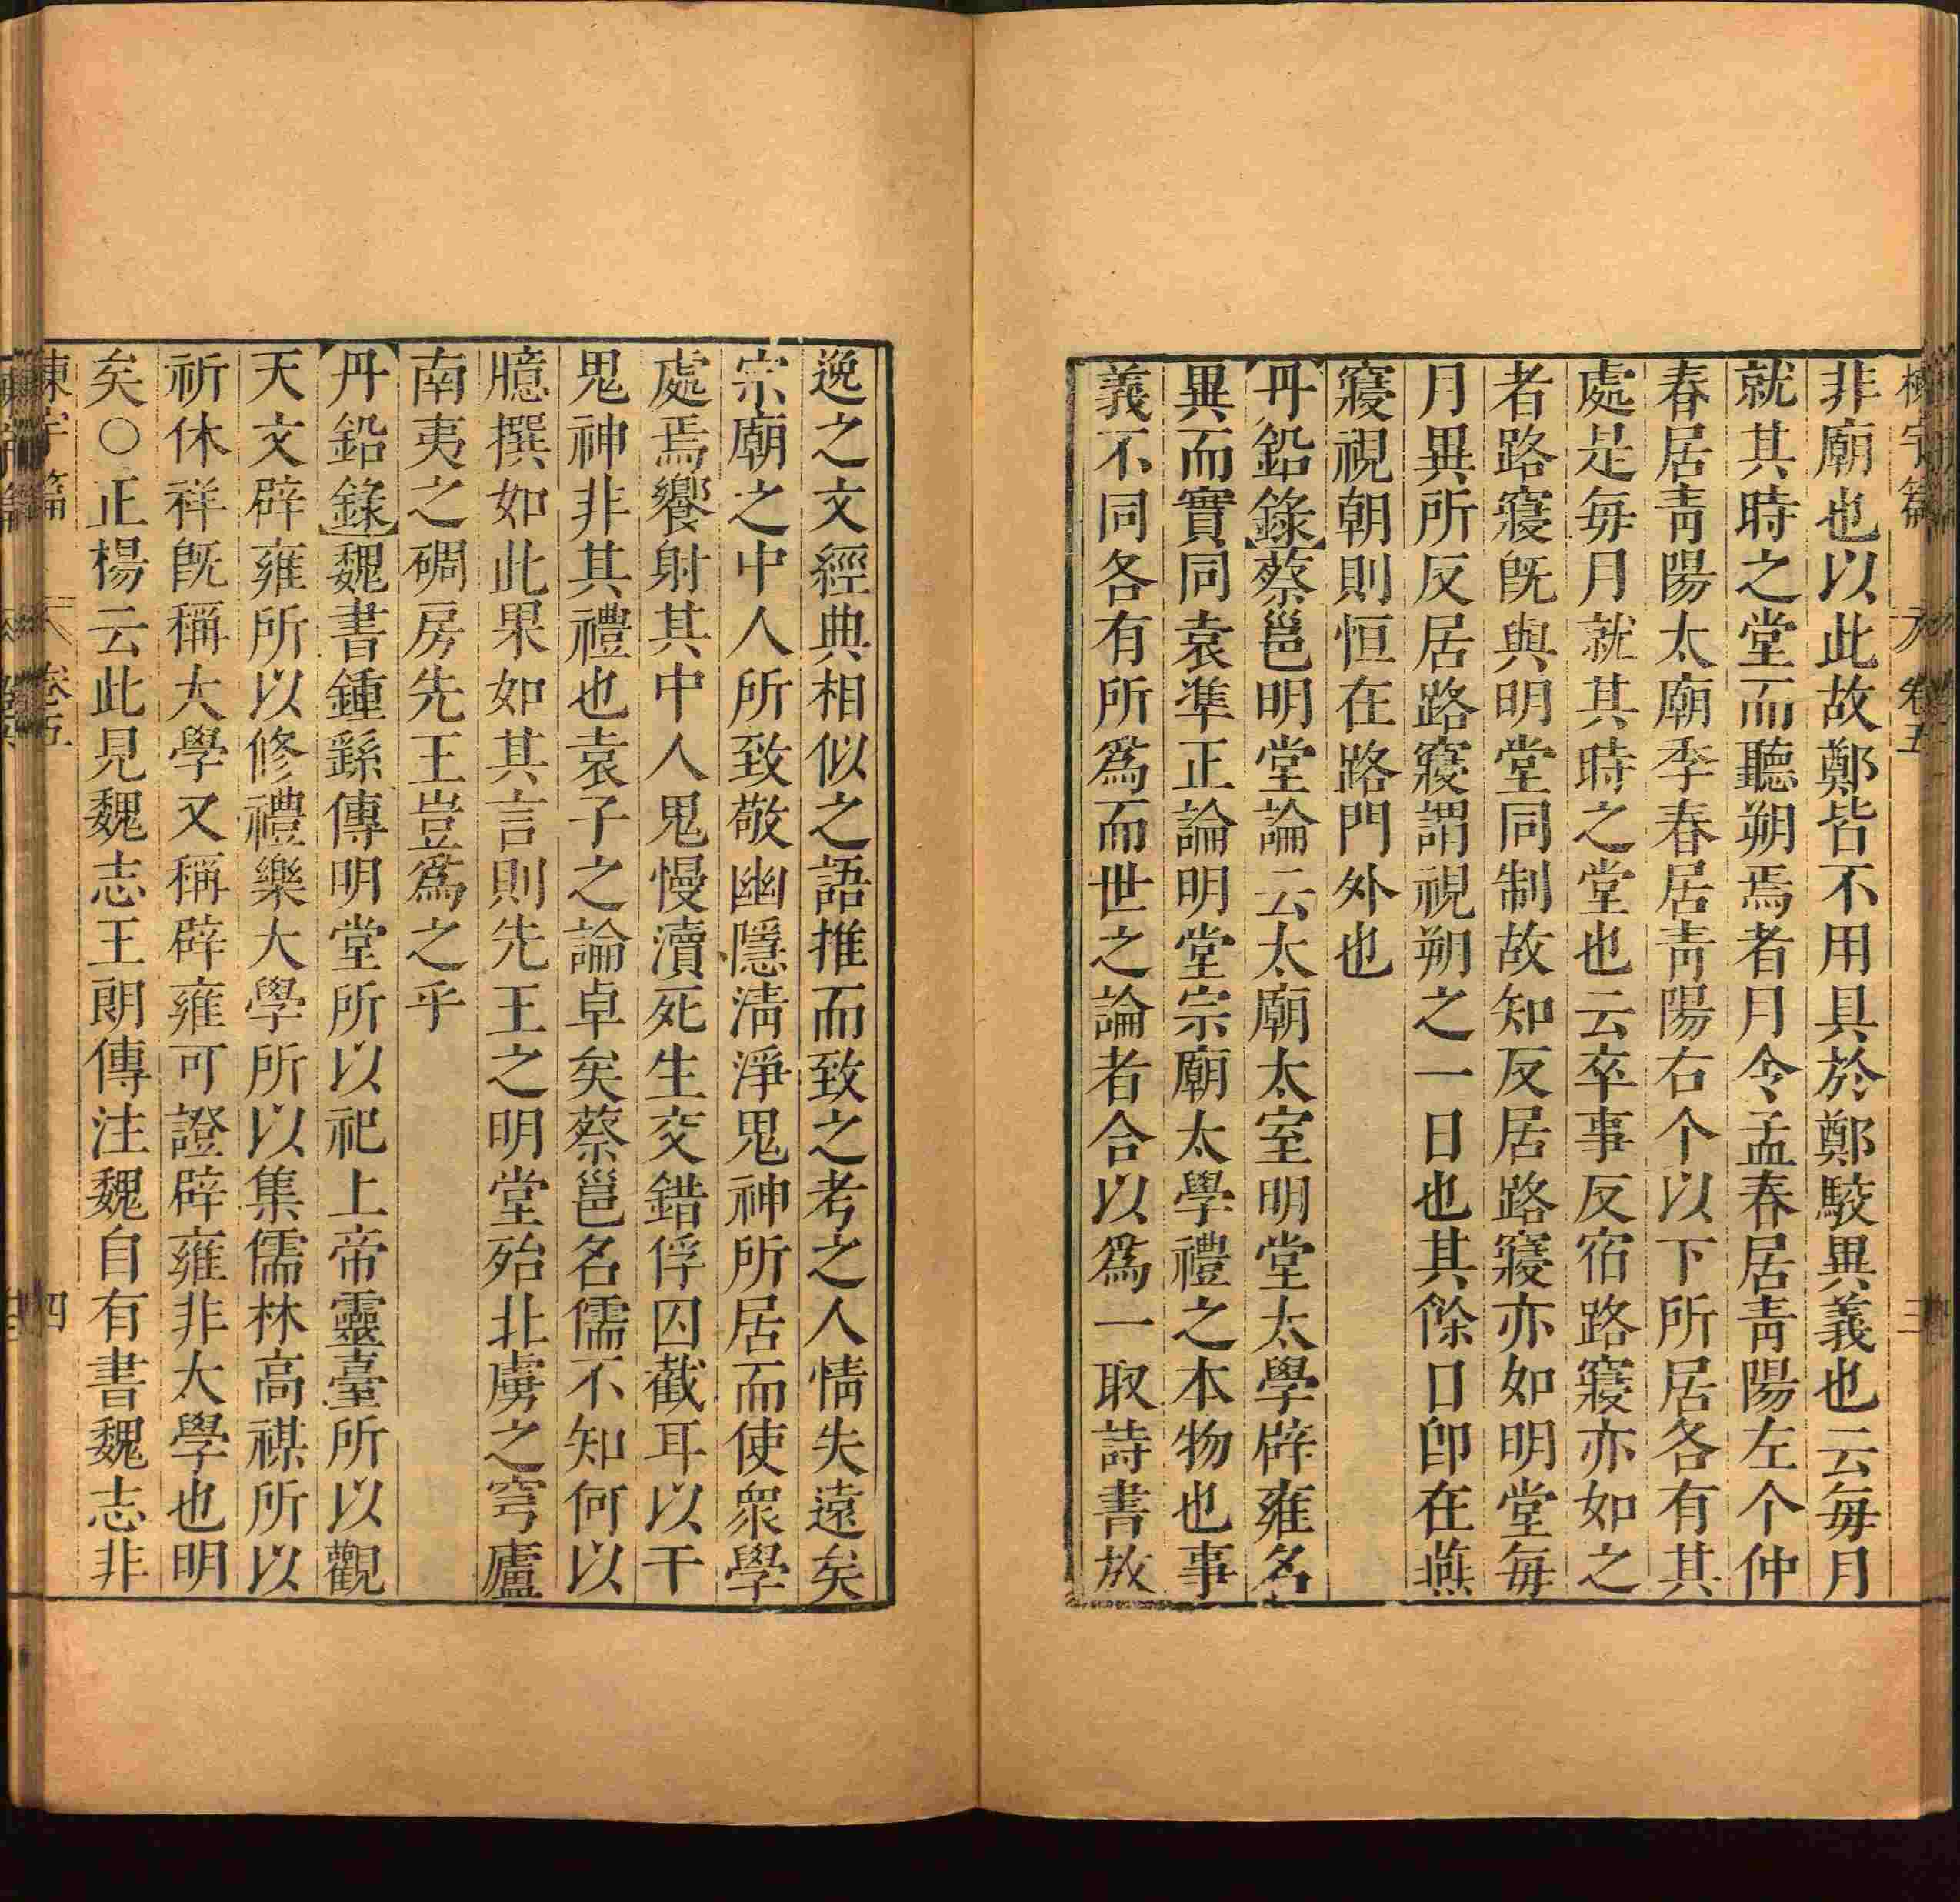 非廟也以此故鄭皆不用具於鄭駮異義也云每月
就其時之堂而聽朔焉者月令孟春居靑陽左个仲
春居靑陽太廟李春居靑陽右个以下所居各有其
處是每月就其時之堂也云卒事反宿路寢亦如之
者路寢旣與明堂同制故知反居路寢亦如明堂每
月異所反居路寢謂視朔之一日也其餘日卽在燕
寢視朝則恒在路門外也
丹鉛錄蔡邕明堂論云太廟太室明堂太學辟雍名
異而實同袁準正論明堂宗廟太學禮之本物也事
義不同各有所爲而世之論者合以爲一取詩書放
逸之文經典相似之語推而致之考之人情失遠矣
宗廟之中人所致敬幽隱淸淨鬼神所居而使衆學
處焉饗射其中人鬼慢瀆死生交錯俘囚截耳以干
鬼神非其禮也袁子之論卓矣蔡邕名儒不知何以
臆撰如此果如其言則先王之明堂殆北虜之穹廬
南夷之碉房先王豈爲之乎
丹鉛錄魏書鍾繇傳明堂所以祀上帝靈臺所以觀
天文辟雍所以修禮樂大學所以集儒林高禖所以
祈休祥旣稱大學又稱辟雍可證辟雍非大學也明
矣○正楊云此見魏志王朗傳注魏自有書魏志非
卷五
四